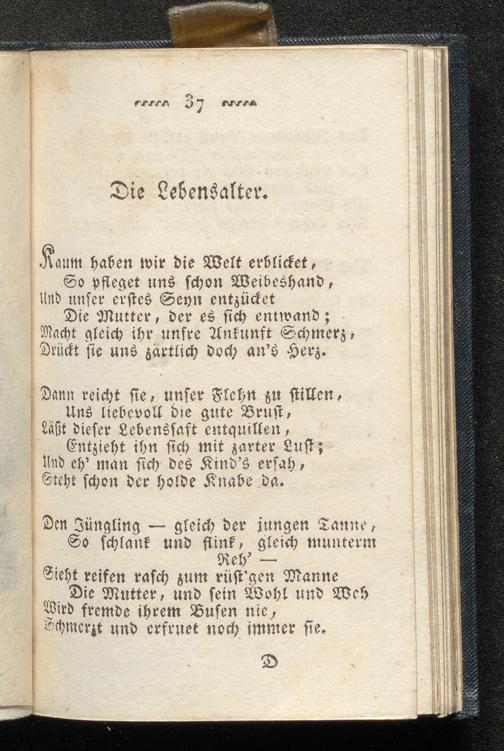 37
Die Lebensalter.
Kaum haben wir die Welt erblicket,
So pfleget uns schon Weibeshand,
Und unser erstes Seyn entzücket
Die Mutter, der es sich entwand;
Macht gleich ihr unsre Ankunft Schmerz,
Drückt sie uns zärtlich doch an's Herz.
Dann reicht sie, unser Flehn zu stillen,
Uns liebevoll die gute Brust,
Läßt dieser Lebenssaft entquillen,
Entzieht ihn sich mit zarter Lust;
Und eh' man sich des Kind's ersah,
Steht schon der holde Knabe da.
Den Jüngling — gleich der jungen Tanne,
So schlank und flink, gleich munterm
Reh' —
Sieht reifen rasch zum rüst'gen Manne
Die Mutter, und sein Wohl und Weh
Wird fremde ihrem Busen nie,
Schmerzt und erfruet noch immer sie.
D